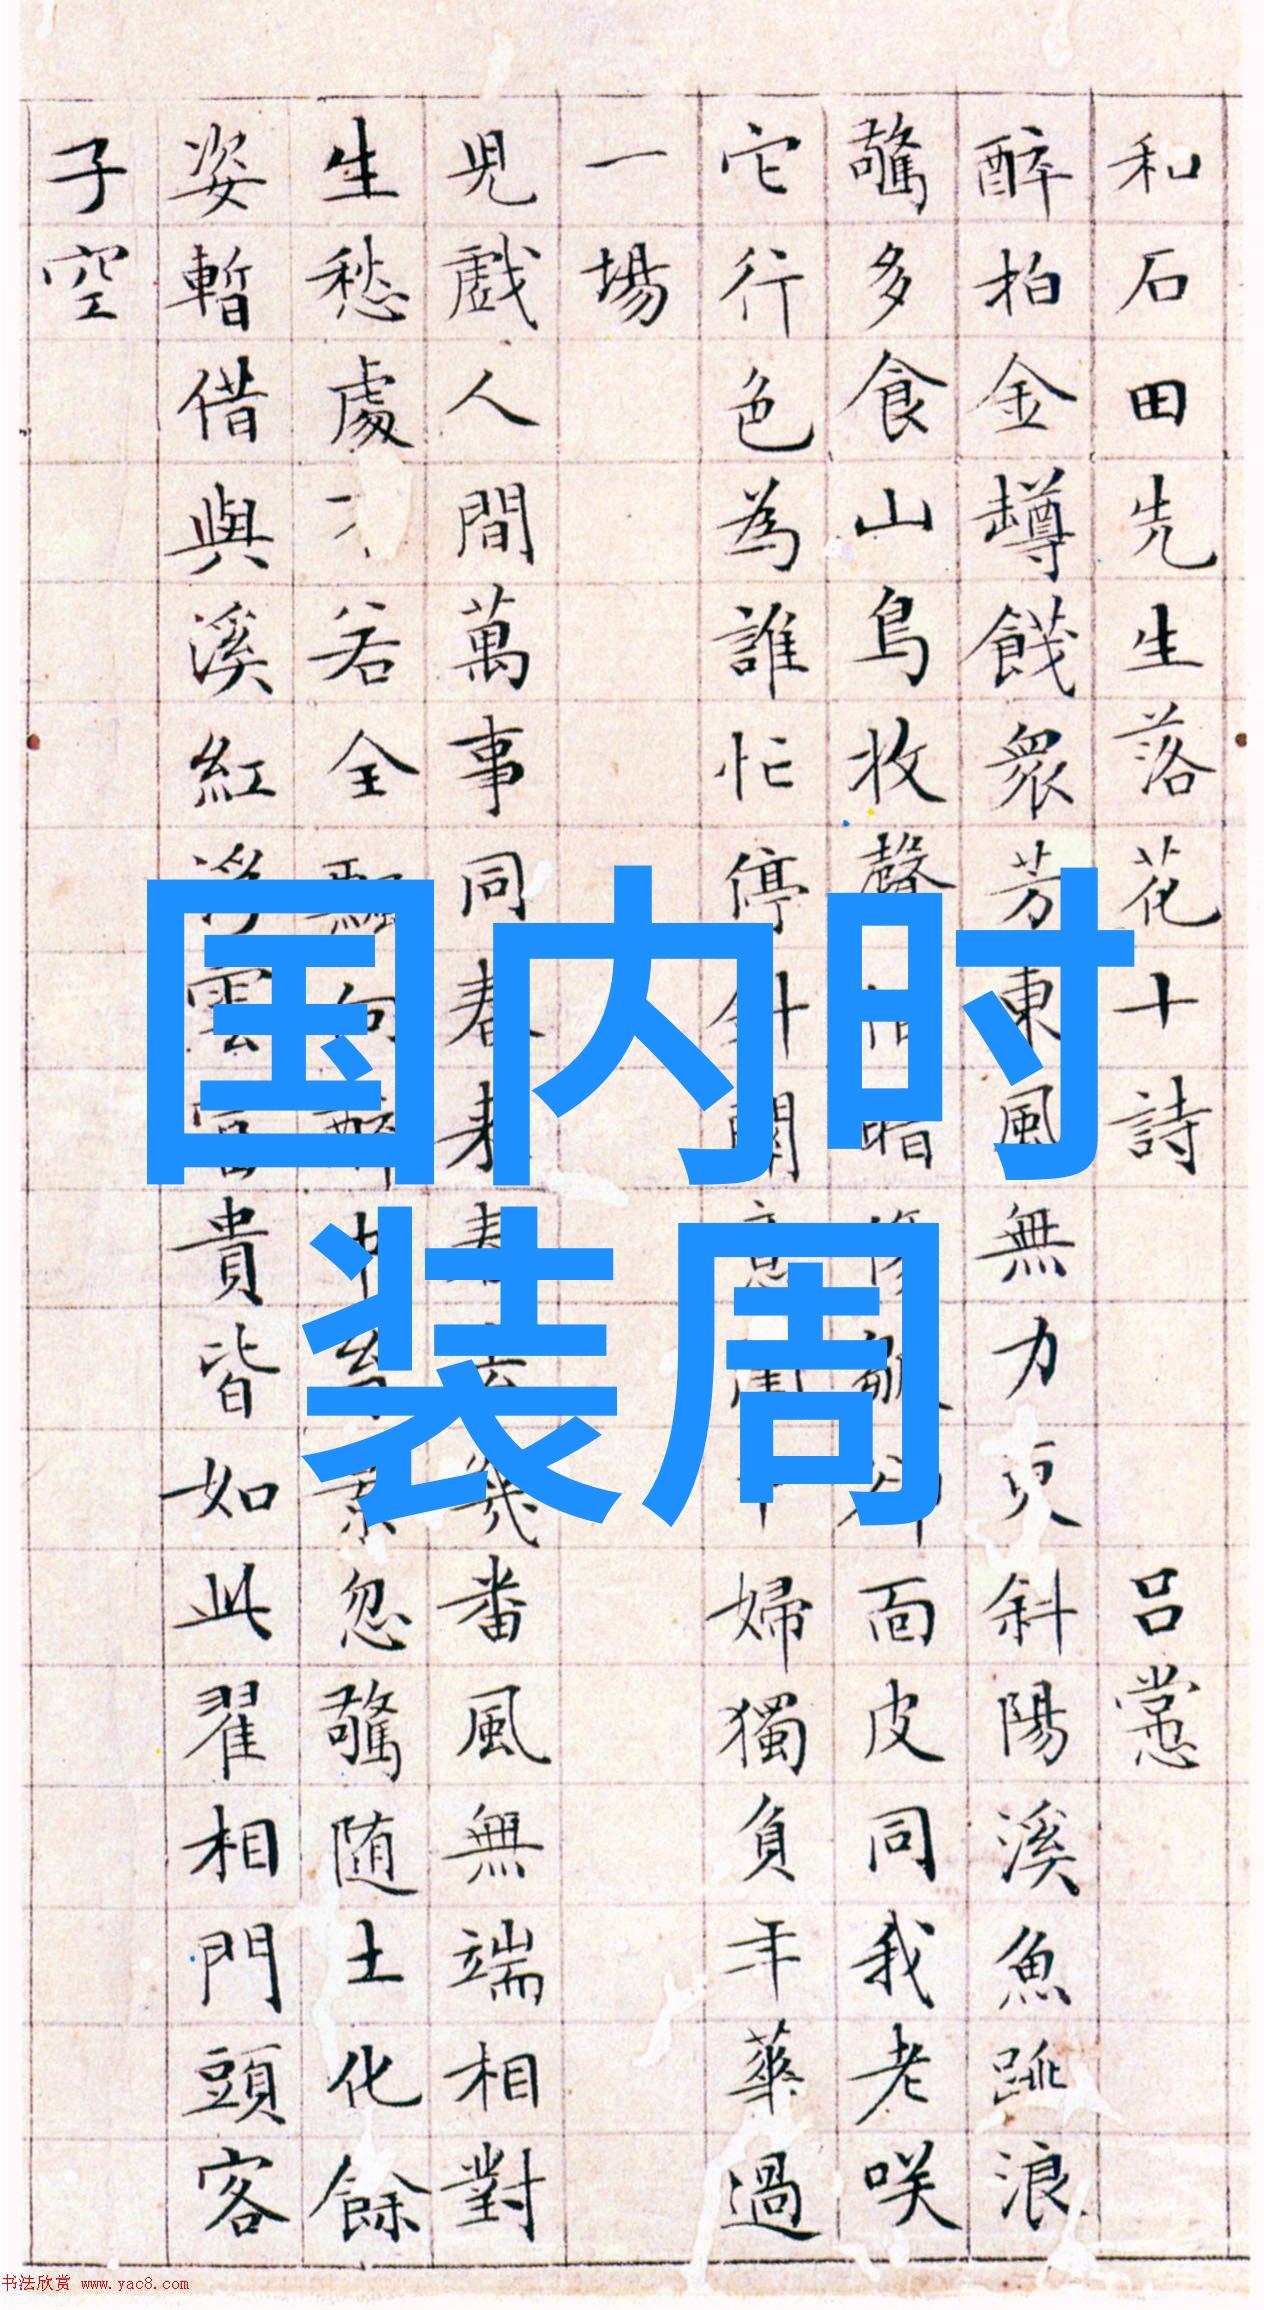 和石田先生落花十詩 呂㦂
醉拍金罇餞衆芳東風無力更斜陽溪魚跳浪
驚多食山鳥收聲暗面皮同我老咲
它行色為誰忙停針關婦獨負年華過
一場
兒戲人間萬事同春來春去幾番風無端相對
生愁處不若全驅向醉中忽驚随土化餘
姿暫借與溪紅浮雲富貴皆如此翟相門頭客
子空
国内时
装周
书法欣赏 www.yac8.com